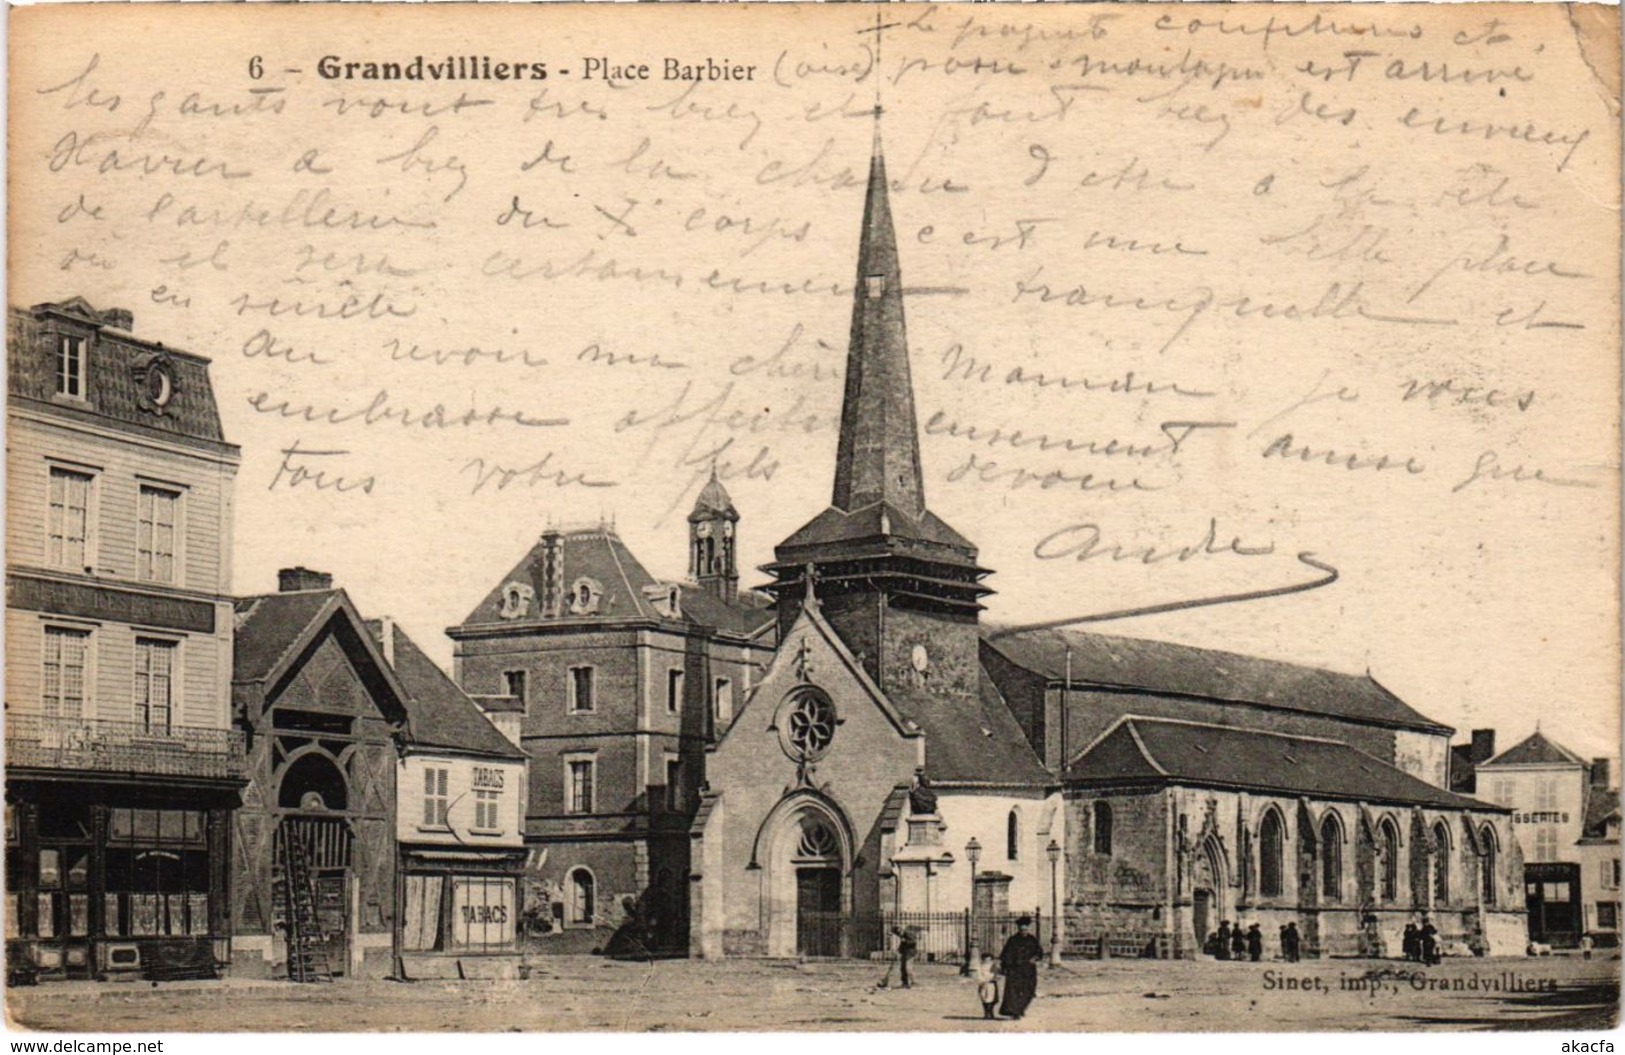 Le paquet confitures et
6 - Grandvilliers - Place Barbier (oise) pour montagne est arrivé
les gants vont très bieg et font bieg des envieux
Xavier a bieg de la chance d'etre à la tête
de l'artillerie du 7e corps c'est une belle place
où il sera certainement tranquille et
en sureté
Au revoir ma chère Maman je vous
embrasse affectueusement ainsi que
tous votre fils devoué
André
CAFÉ RESTAURANT
TABACS
TABACS
SSERIES
Sinet, imp., Grandvilliers
akacfa
delcampe.net